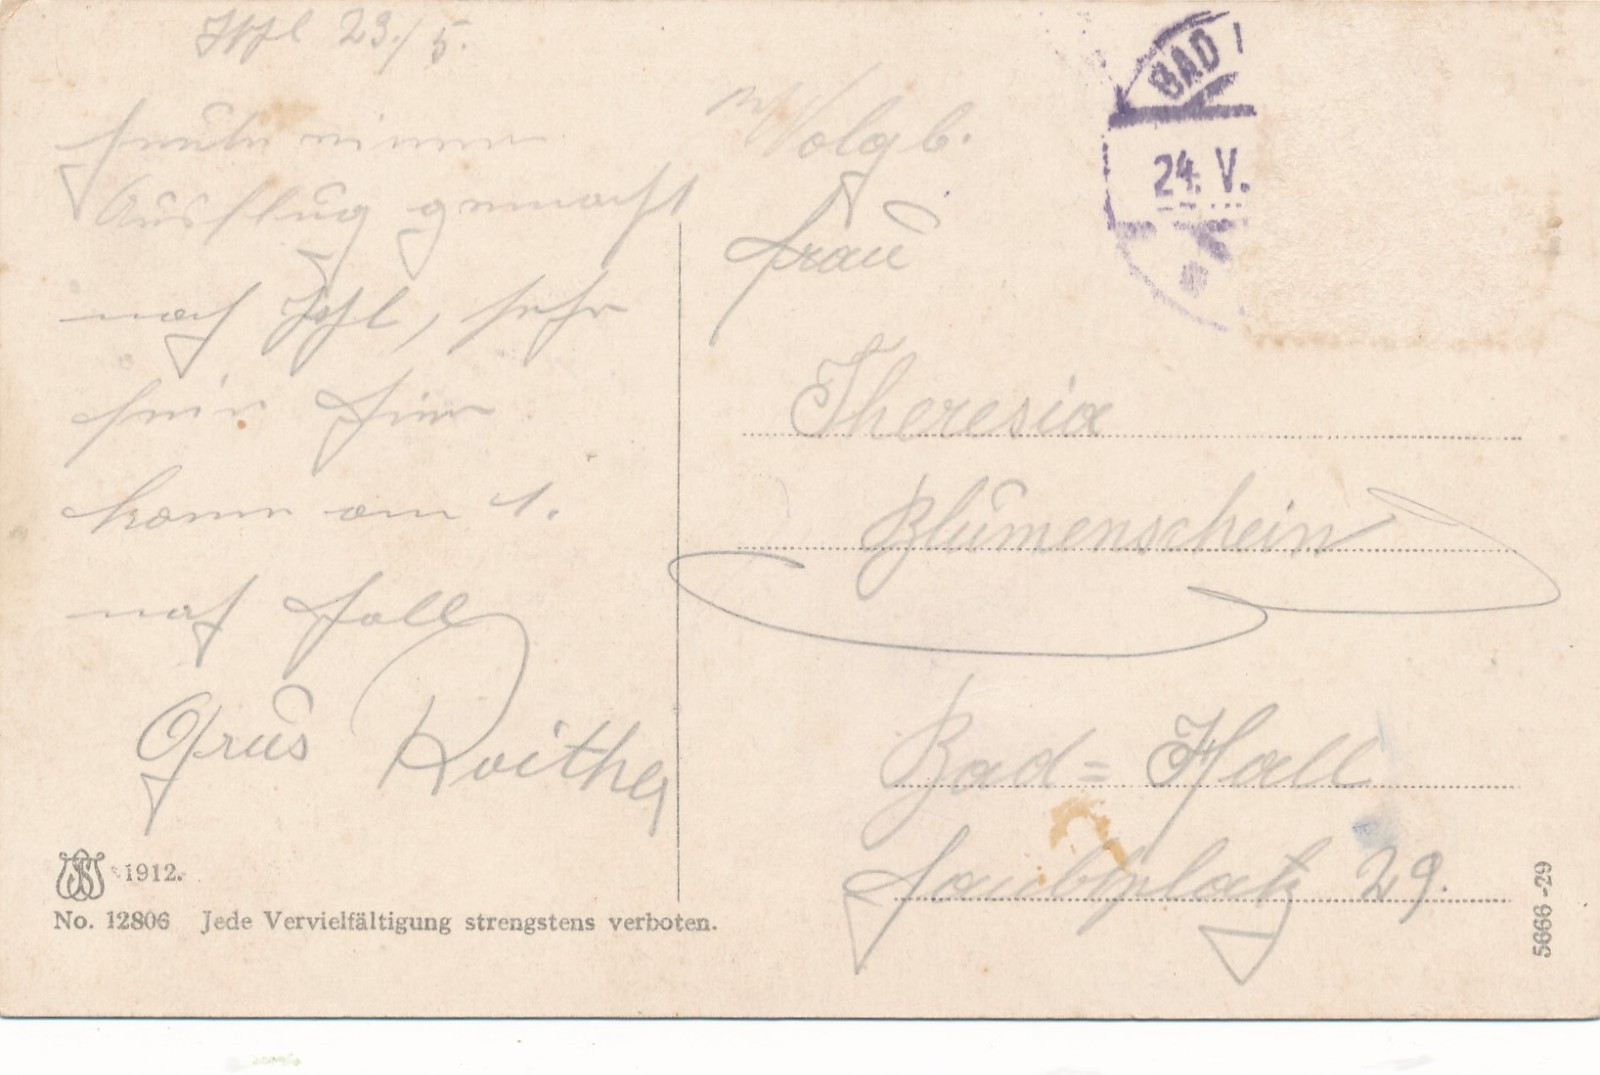 Ischl 23./5.
heute einen
Ausflug gemacht
nach Ischl, sehr
fein hier
komm am 1.
nach Hall
Grus Roitha
Wolgb.
Frau
Theresia
Blumenschein
Bad=Hall
29.
BAD I
24. V.
1912.
No. 12806 Jede Vervielfältigung strengstens verboten.
5666-29